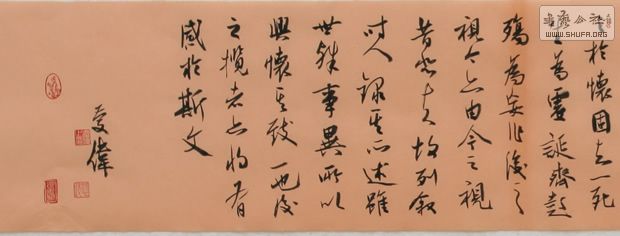 於懷固知一死
生為虛誕齊彭
殤為妄作後之
視今亦由今之視
昔悲夫故列敘
時人錄其所述雖
世殊事異所以
興懷其致一也後
之攬者亦將有
感於斯文
偉
WWW.SHUFA.ORG